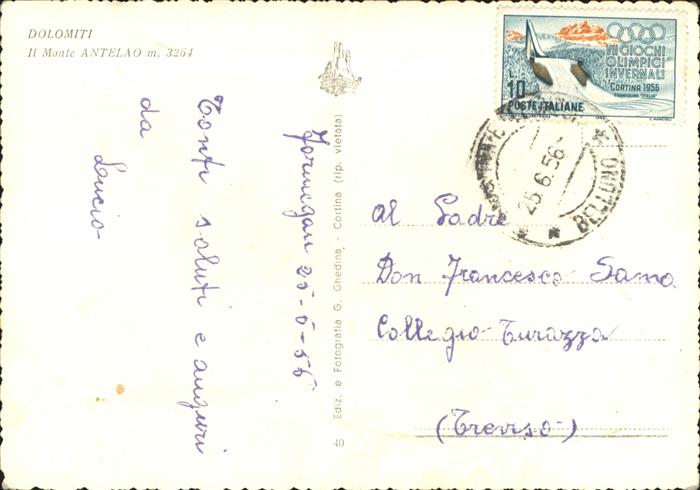 DOLOMITI
Il Monte ANTELAO m. 3264
Formegan 25-6-56
Tonti saluti e auguri
da
Lucio
Ediz. e Fotografia G. Ghedina - Cortina (rip. vietata)
40
VII GIOCHI
OLIMPICI
INVERNALI
CORTINA 1956
TRAMPOLINO "ITALIA"
L.
10
POSTE ITALIANE
25.6.56
BELLUNO
Al Padre
Don Francesco Sama
Collegio Turazza
(Treviso)